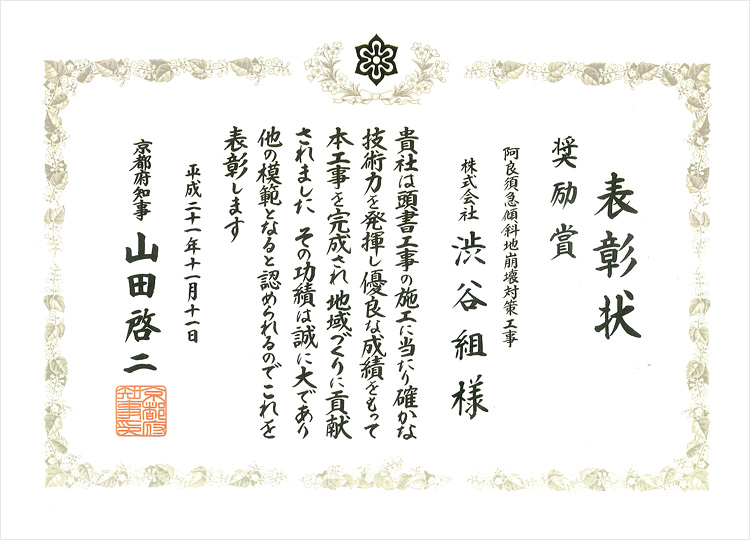 表彰状
奨励賞
阿良須急傾斜地崩壊対策工事
株式会社 渋谷組 様
貴社は頭書工事の施工に当たり確かな
技術力を発揮し優良な成績をもって
本工事を完成され地域づくりに貢献
されました その功績は誠に大であり
他の模範となると認められるのでこれを
表彰します
平成二十一年十一月十一日
京都府知事 山田啓二
京都府知事印